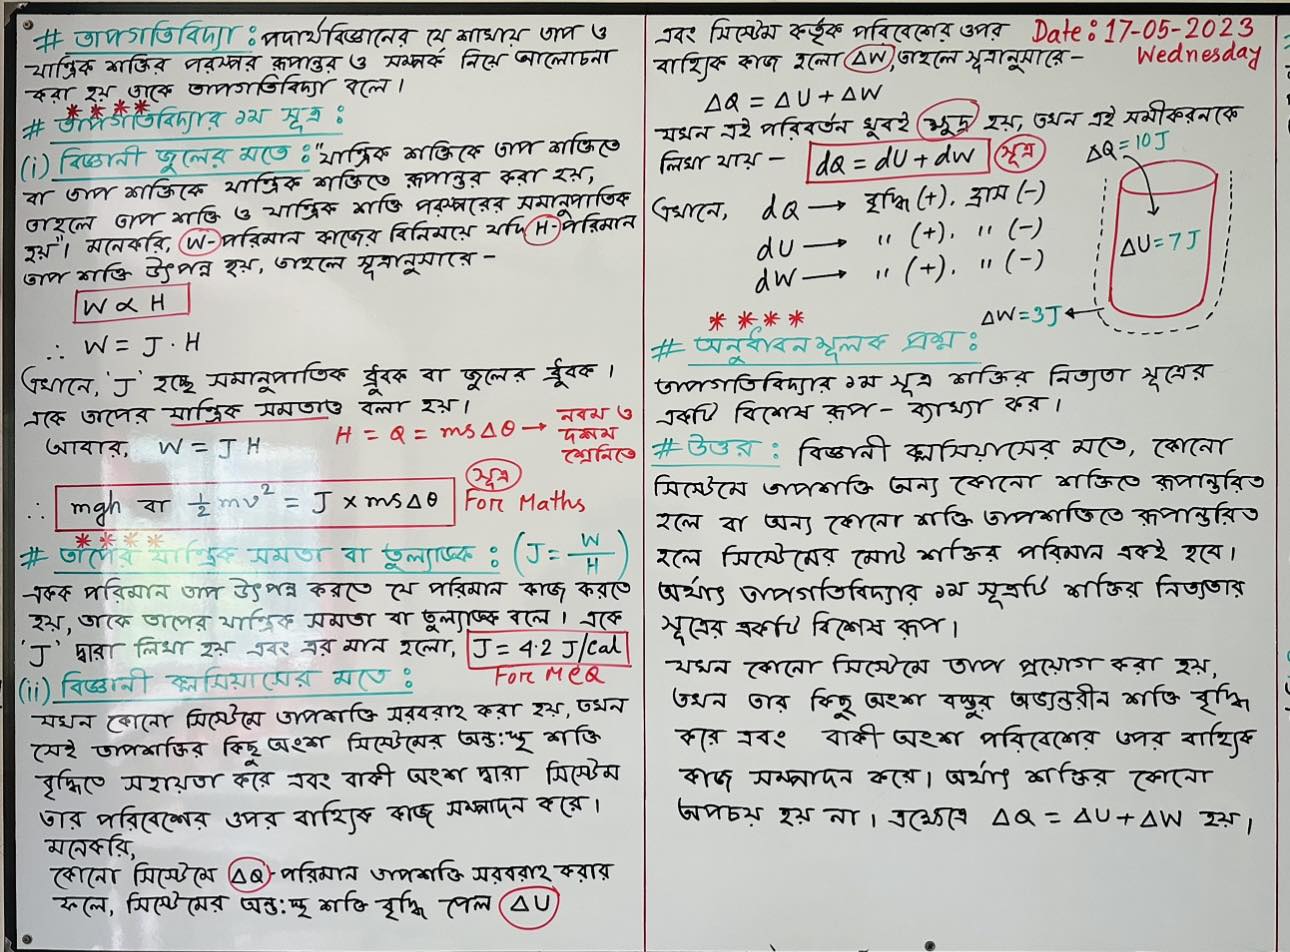 # তাপগতিবিদ্যা : পদার্থবিজ্ঞানের যে শাখায় তাপ ও
যান্ত্রিক শক্তির পরস্পর রূপান্তর ও সম্পর্ক নিয়ে আলোচনা
করা হয় তাকে তাপগতিবিদ্যা বলে।
* * * *
# তাপগতিবিদ্যার ১ম সূত্র :
(i) বিজ্ঞানী জুলের মতে : "যান্ত্রিক শক্তিকে তাপ শক্তিতে
বা তাপ শক্তিকে যান্ত্রিক শক্তিতে রূপান্তর করা হয়,
তাহলে তাপ শক্তি ও যান্ত্রিক শক্তি পরস্পরের সমানুপাতিক
হয়"। মনেকরি, W-পরিমান কাজের বিনিময়ে যদি H-পরিমান
তাপ শক্তি উৎপন্ন হয়, তাহলে সূত্রানুসারে -
W ∝ H
∴ W = J · H
এখানে, 'J' হচ্ছে সমানুপাতিক ধ্রুবক বা জুলের ধ্রুবক।
একে তাপের যান্ত্রিক সমতাও বলা হয়।
আবার, W = J H
H = Q = msΔθ → নবম ও
দশম
শ্রেনিতে
∴ mgh বা ½mv² = J × msΔθ
সূত্র
For Maths
* * * *
# তাপের যান্ত্রিক সমতা বা তুল্যাঙ্ক : (J = W/H)
একক পরিমান তাপ উৎপন্ন করতে যে পরিমান কাজ করতে
হয়, তাকে তাপের যান্ত্রিক সমতা বা তুল্যাঙ্ক বলে। একে
'J' দ্বারা লিখা হয় এবং এর মান হলো, J = 4·2 J/cal
For MCQ
(ii) বিজ্ঞানী ক্লসিয়াসের মতে :
যখন কোনো সিস্টেমে তাপশক্তি সরবরাহ করা হয়, তখন
সেই তাপশক্তির কিছু অংশ সিস্টেমের অন্ত:স্থ শক্তি
বৃদ্ধিতে সহায়তা করে এবং বাকী অংশ দ্বারা সিস্টেম
তার পরিবেশের ওপর বাহ্যিক কাজ সম্পাদন করে।
মনেকরি,
কোনো সিস্টেমে ΔQ-পরিমান তাপশক্তি সরবরাহ করার
ফলে, সিস্টেমের অন্ত:স্থ শক্তি বৃদ্ধি পেল ΔU
এবং সিস্টেম কর্তৃক পরিবেশের ওপর
Date: 17-05-2023
Wednesday
বাহ্যিক কাজ হলো ΔW, তাহলে সূত্রানুসারে -
ΔQ = ΔU + ΔW
যখন এই পরিবর্তন খুবই ক্ষুদ্র হয়, তখন এই সমীকরনকে
লিখা যায় - dQ = dU + dW সূত্র
এখানে, dQ → বৃদ্ধি (+), হ্রাস (-)
dU → " (+), " (-)
dW → " (+), " (-)
ΔQ = 10 J
ΔU = 7 J
ΔW = 3J ←
* * * *
# অনুধাবনমূলক প্রশ্ন :
তাপগতিবিদ্যার ১ম সূত্র শক্তির নিত্যতা সূত্রের
একটি বিশেষ রূপ - ব্যাখ্যা কর।
# উত্তর : বিজ্ঞানী ক্লসিয়াসের মতে, কোনো
সিস্টেমে তাপশক্তি অন্য কোনো শক্তিতে রূপান্তরিত
হলে বা অন্য কোনো শক্তি তাপশক্তিতে রূপান্তরিত
হলে সিস্টেমের মোট শক্তির পরিমান একই হবে।
অর্থাৎ তাপগতিবিদ্যার ১ম সূত্রটি শক্তির নিত্যতার
সূত্রের একটি বিশেষ রূপ।
যখন কোনো সিস্টেমে তাপ প্রয়োগ করা হয়,
তখন তার কিছু অংশ বস্তুর অভ্যন্তরীন শক্তি বৃদ্ধি
করে এবং বাকী অংশ পরিবেশের ওপর বাহ্যিক
কাজ সম্পাদন করে। অর্থাৎ শক্তির কোনো
অপচয় হয় না। এক্ষেত্রে ΔQ = ΔU + ΔW হয়।